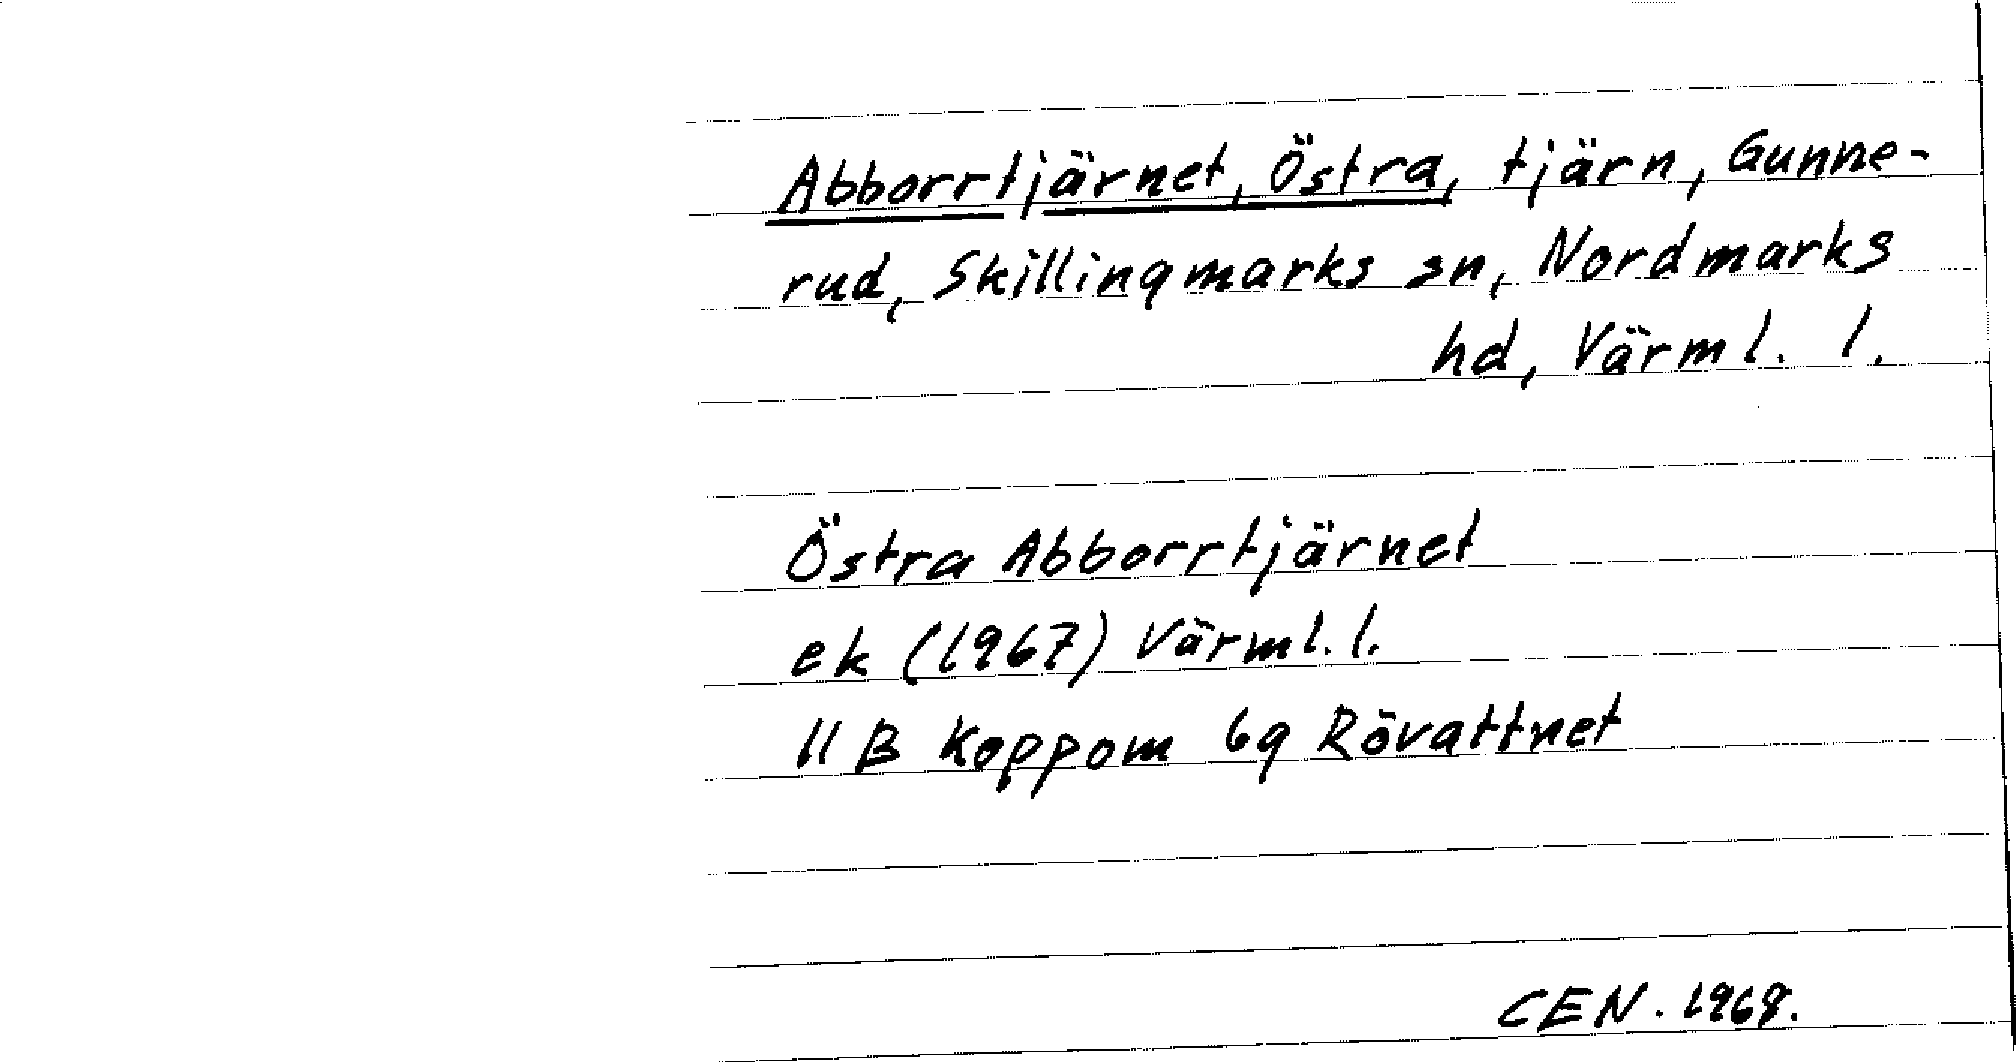 Abborrtjärnet, Östra, tjärn, Gunne-
rud, Skillingmarks sn, Nordmarks
hd, Värml. l.
Östra Abborrtjärnet
ek (1967) Värml. l.
11 B Koppom 6g Rövattnet
CEN. 1968.